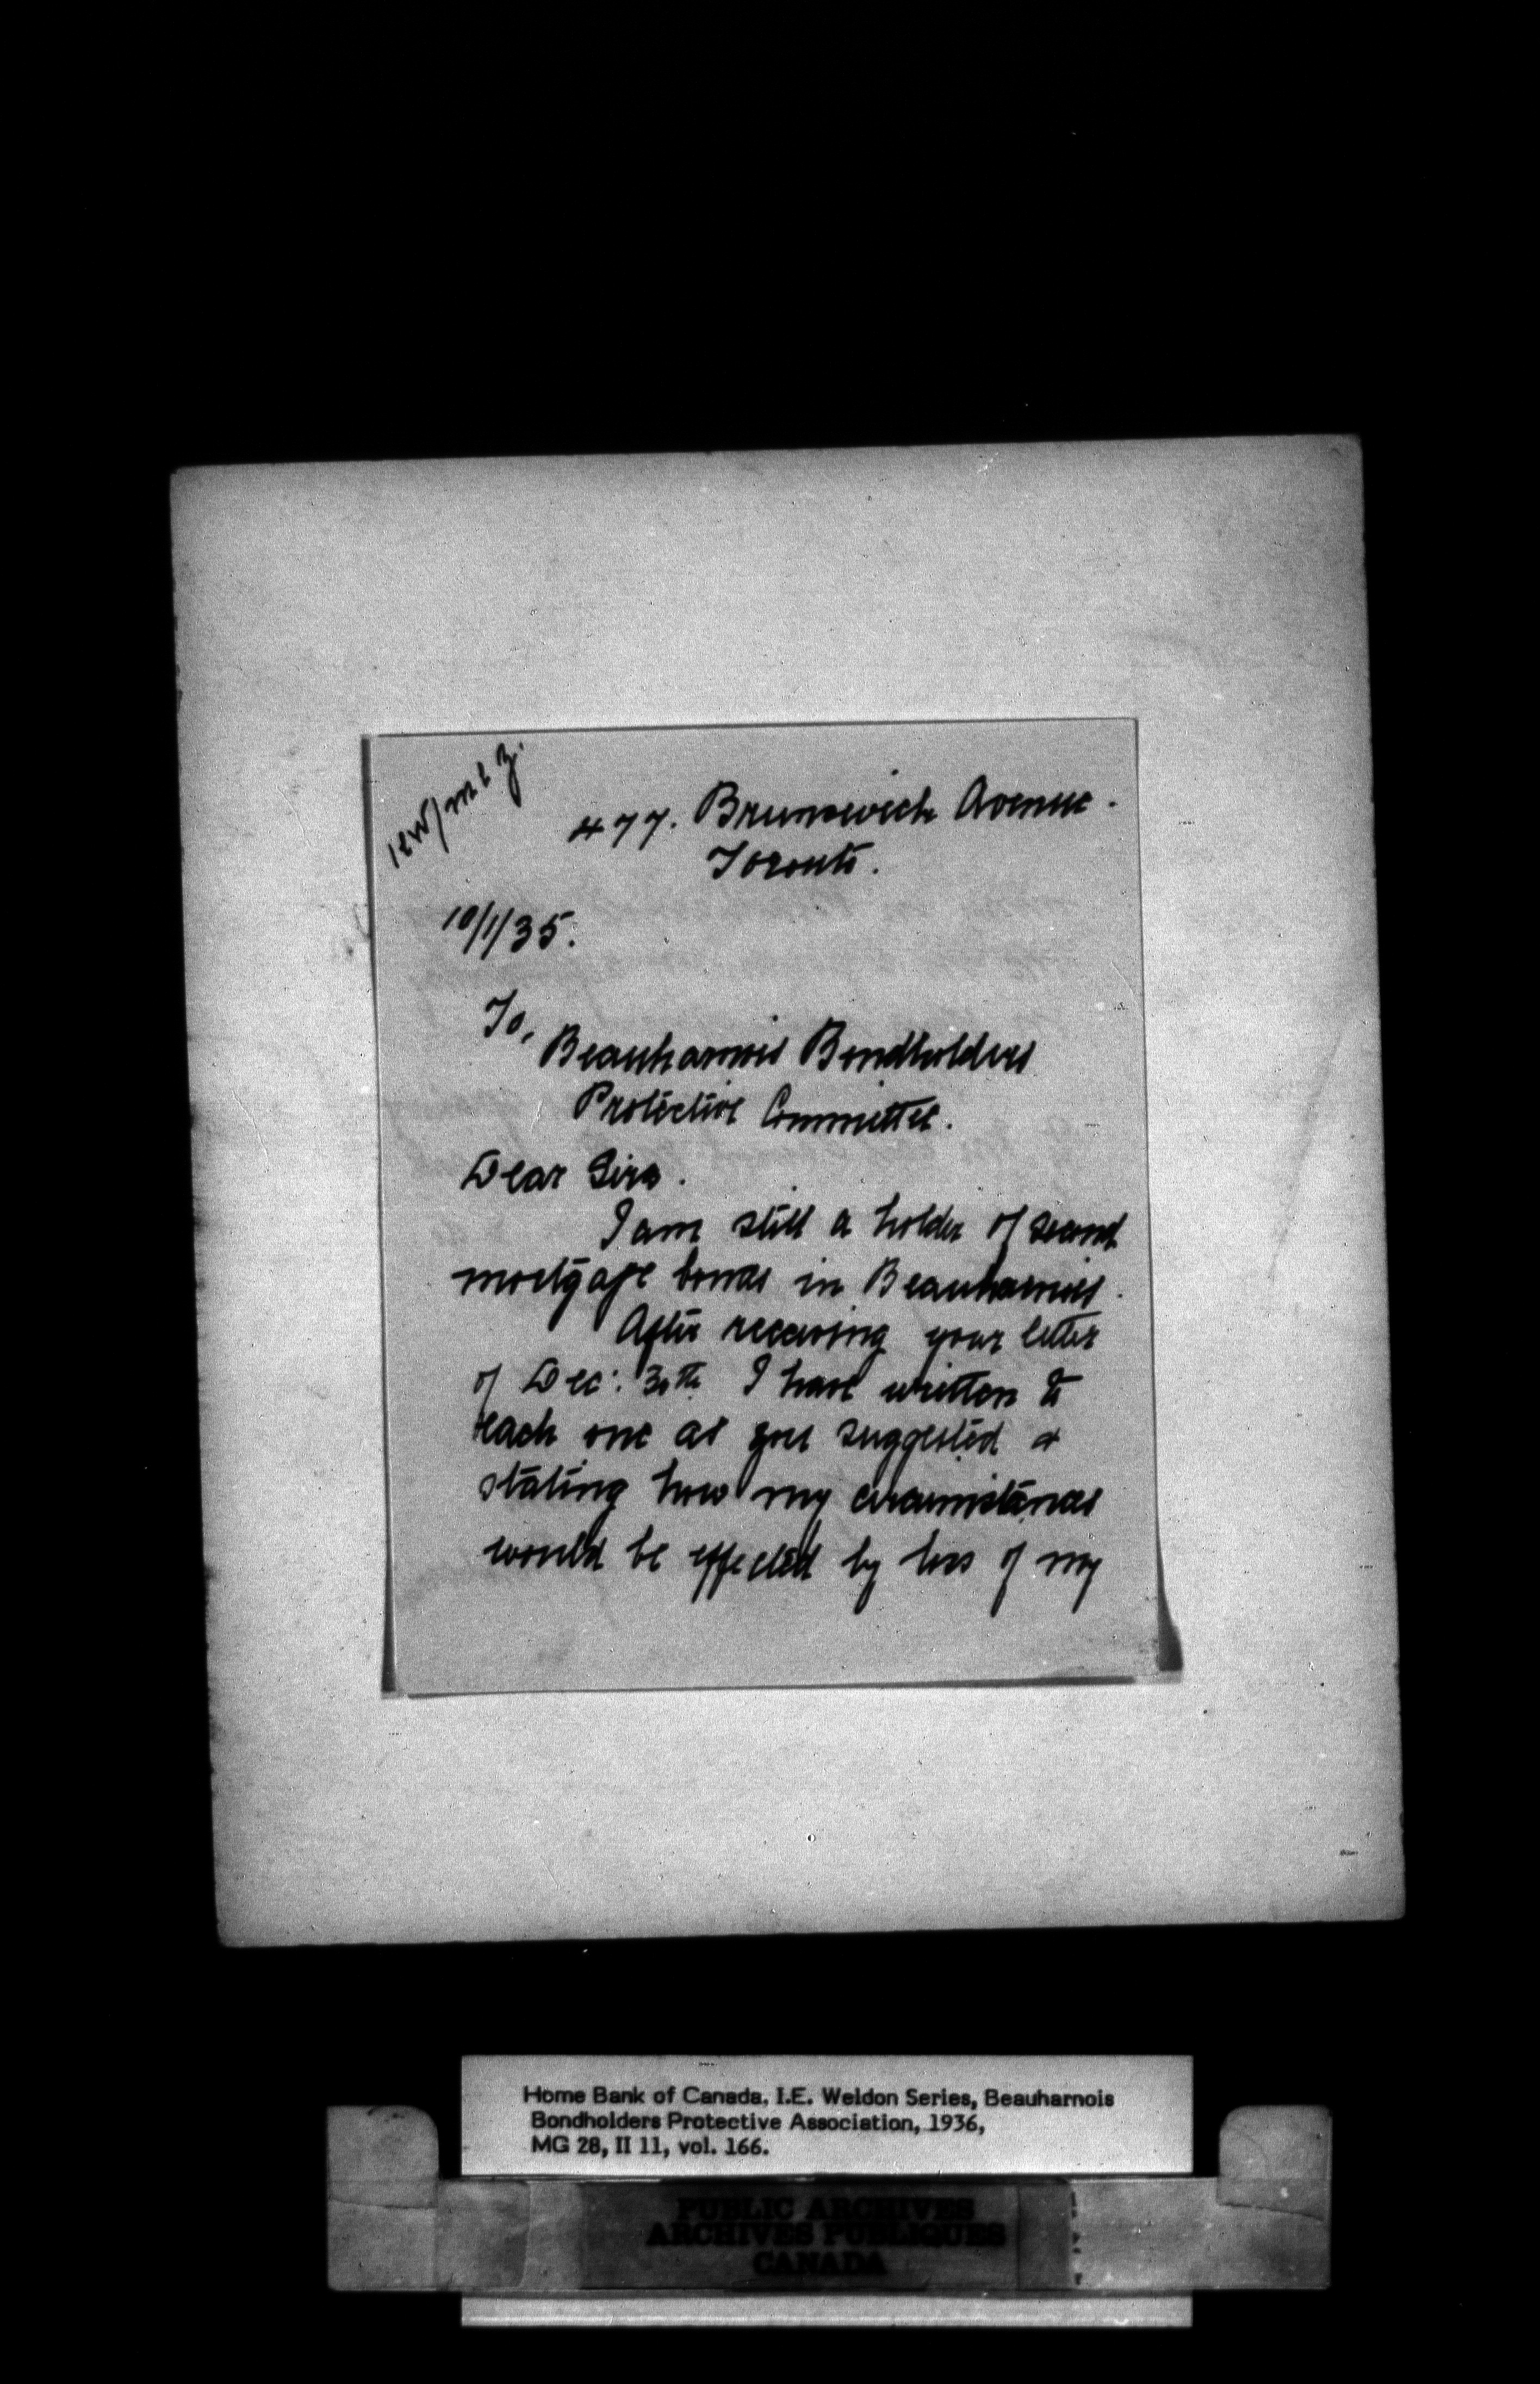 477. Brunswick Avenue.
Toronto.
10/1/35.
To,
Beauharnois Bondholders
Protective Committee.
Dear Sirs.
I am still a holder of second
mortgage bonds in Beauharnois.
After receiving your letter
of Dec: 30th I have written to
each one as you suggested &
stating how my circumstances
would be effected by loss of my
Home Bank of Canada, I.E. Weldon Series, Beauharnois
Bondholders Protective Association, 1936,
MG 28, II 11, vol. 166.
PUBLIC ARCHIVES
ARCHIVES PUBLIQUES
CANADA